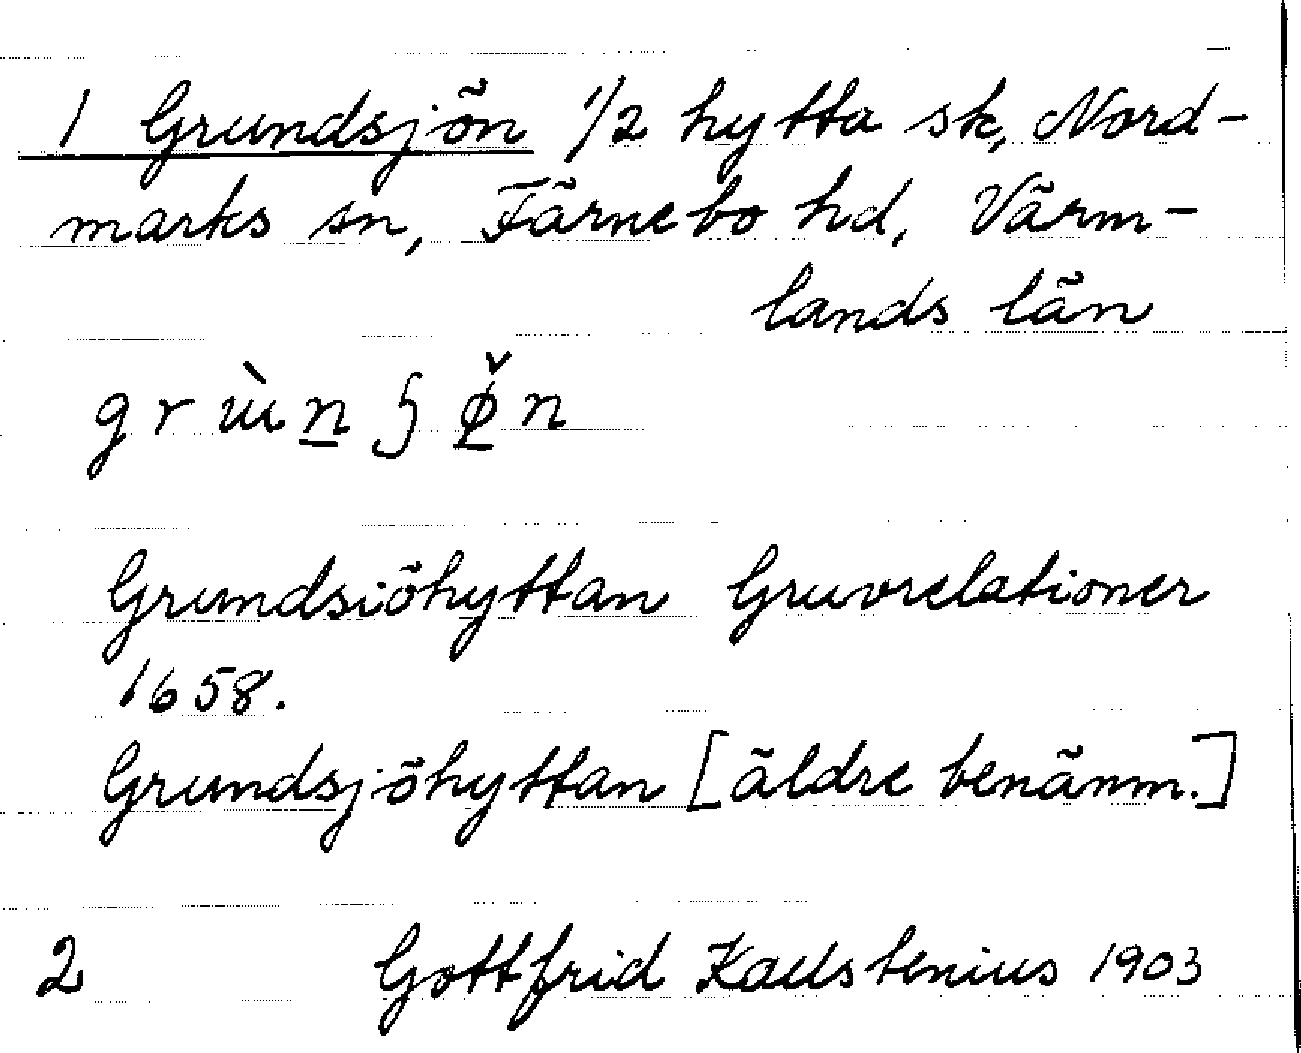 1 Grundsjön 1/2 hytta sk, Nord-
marks sn, Färnebo hd, Värm-
lands län
Grundsiöhyttan Gruvrelationer
1658.
Grundsjöhyttan [äldre benämn.]
2 Gottfrid Kallstenius 1903